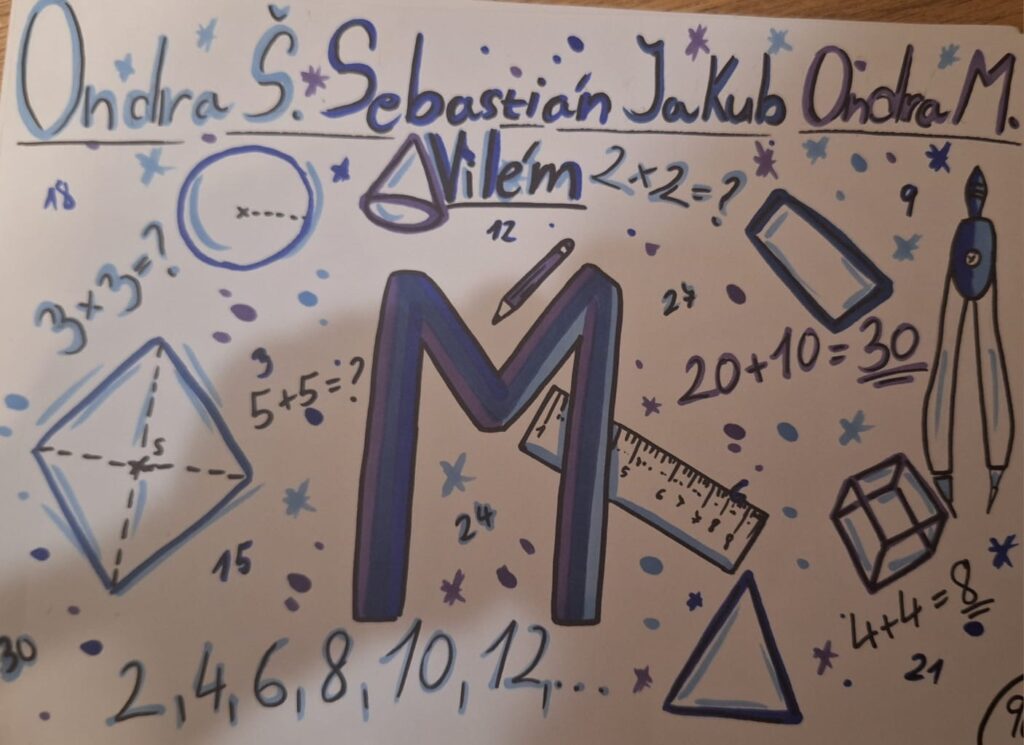 Ondra Š. Sebastián Jakub Ondra M.
Vilém
2×2=?
18
12
9
3×3=?
27
3
5+5=?
20+10=30
M
S
1
5
6 7 8
24
15
4+4=8
30
21
2, 4, 6, 8, 10, 12, ...